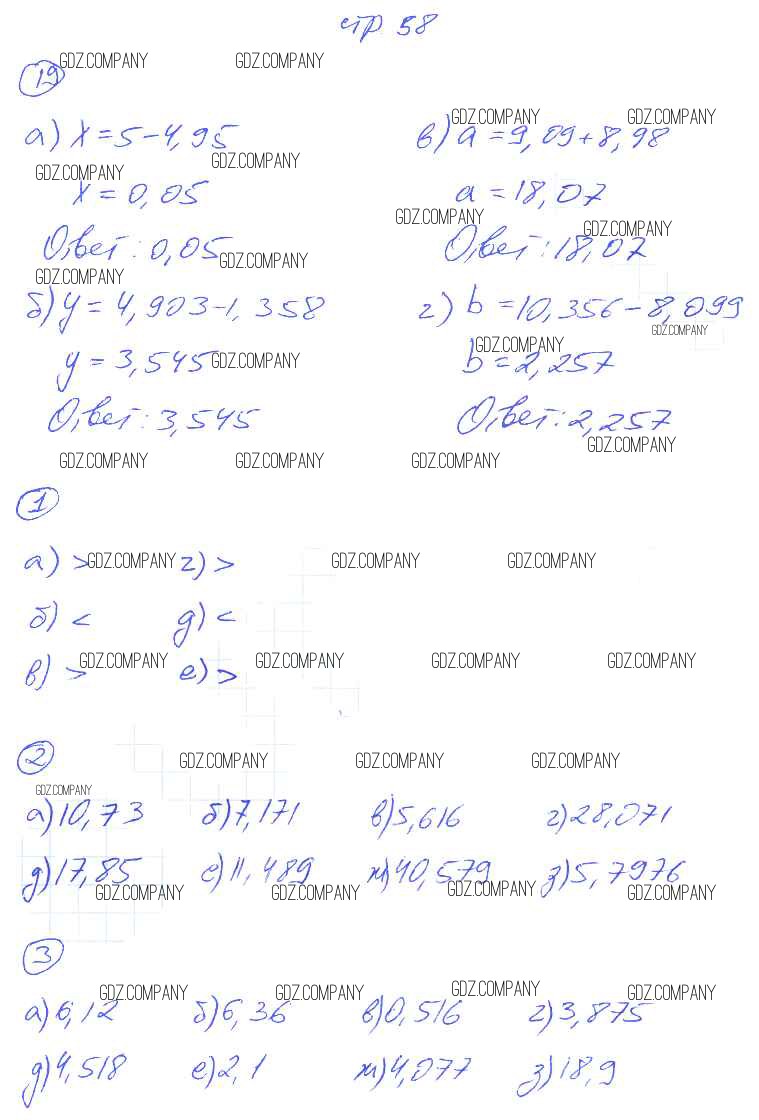 стр 58
GDZ.COMPANY GDZ.COMPANY
19
GDZ.COMPANY GDZ.COMPANY
а) x = 5 - 4,95 в) a = 9,09 + 8,98
GDZ.COMPANY GDZ.COMPANY
x = 0,05 a = 18,07
GDZ.COMPANY GDZ.COMPANY
Ответ: 0,05 Ответ: 18,07
GDZ.COMPANY GDZ.COMPANY
б) y = 4,903 - 1,358 г) b = 10,356 - 8,099
GDZ.COMPANY
GDZ.COMPANY GDZ.COMPANY
y = 3,545 b = 2,257
Ответ: 3,545 Ответ: 2,257
GDZ.COMPANY
GDZ.COMPANY GDZ.COMPANY GDZ.COMPANY
1
а) > GDZ.COMPANY г) > GDZ.COMPANY GDZ.COMPANY
б) < д) <
в) > GDZ.COMPANY е) > GDZ.COMPANY GDZ.COMPANY GDZ.COMPANY
2
GDZ.COMPANY GDZ.COMPANY GDZ.COMPANY
GDZ.COMPANY
а) 10,73 б) 7,171 в) 5,616 г) 28,071
д) 17,85 е) 11,489 ж) 40,579 з) 5,7976
GDZ.COMPANY GDZ.COMPANY GDZ.COMPANY GDZ.COMPANY
3
GDZ.COMPANY GDZ.COMPANY GDZ.COMPANY GDZ.COMPANY
а) 6,12 б) 6,36 в) 0,516 г) 3,875
д) 4,518 е) 2,1 ж) 4,077 з) 18,9